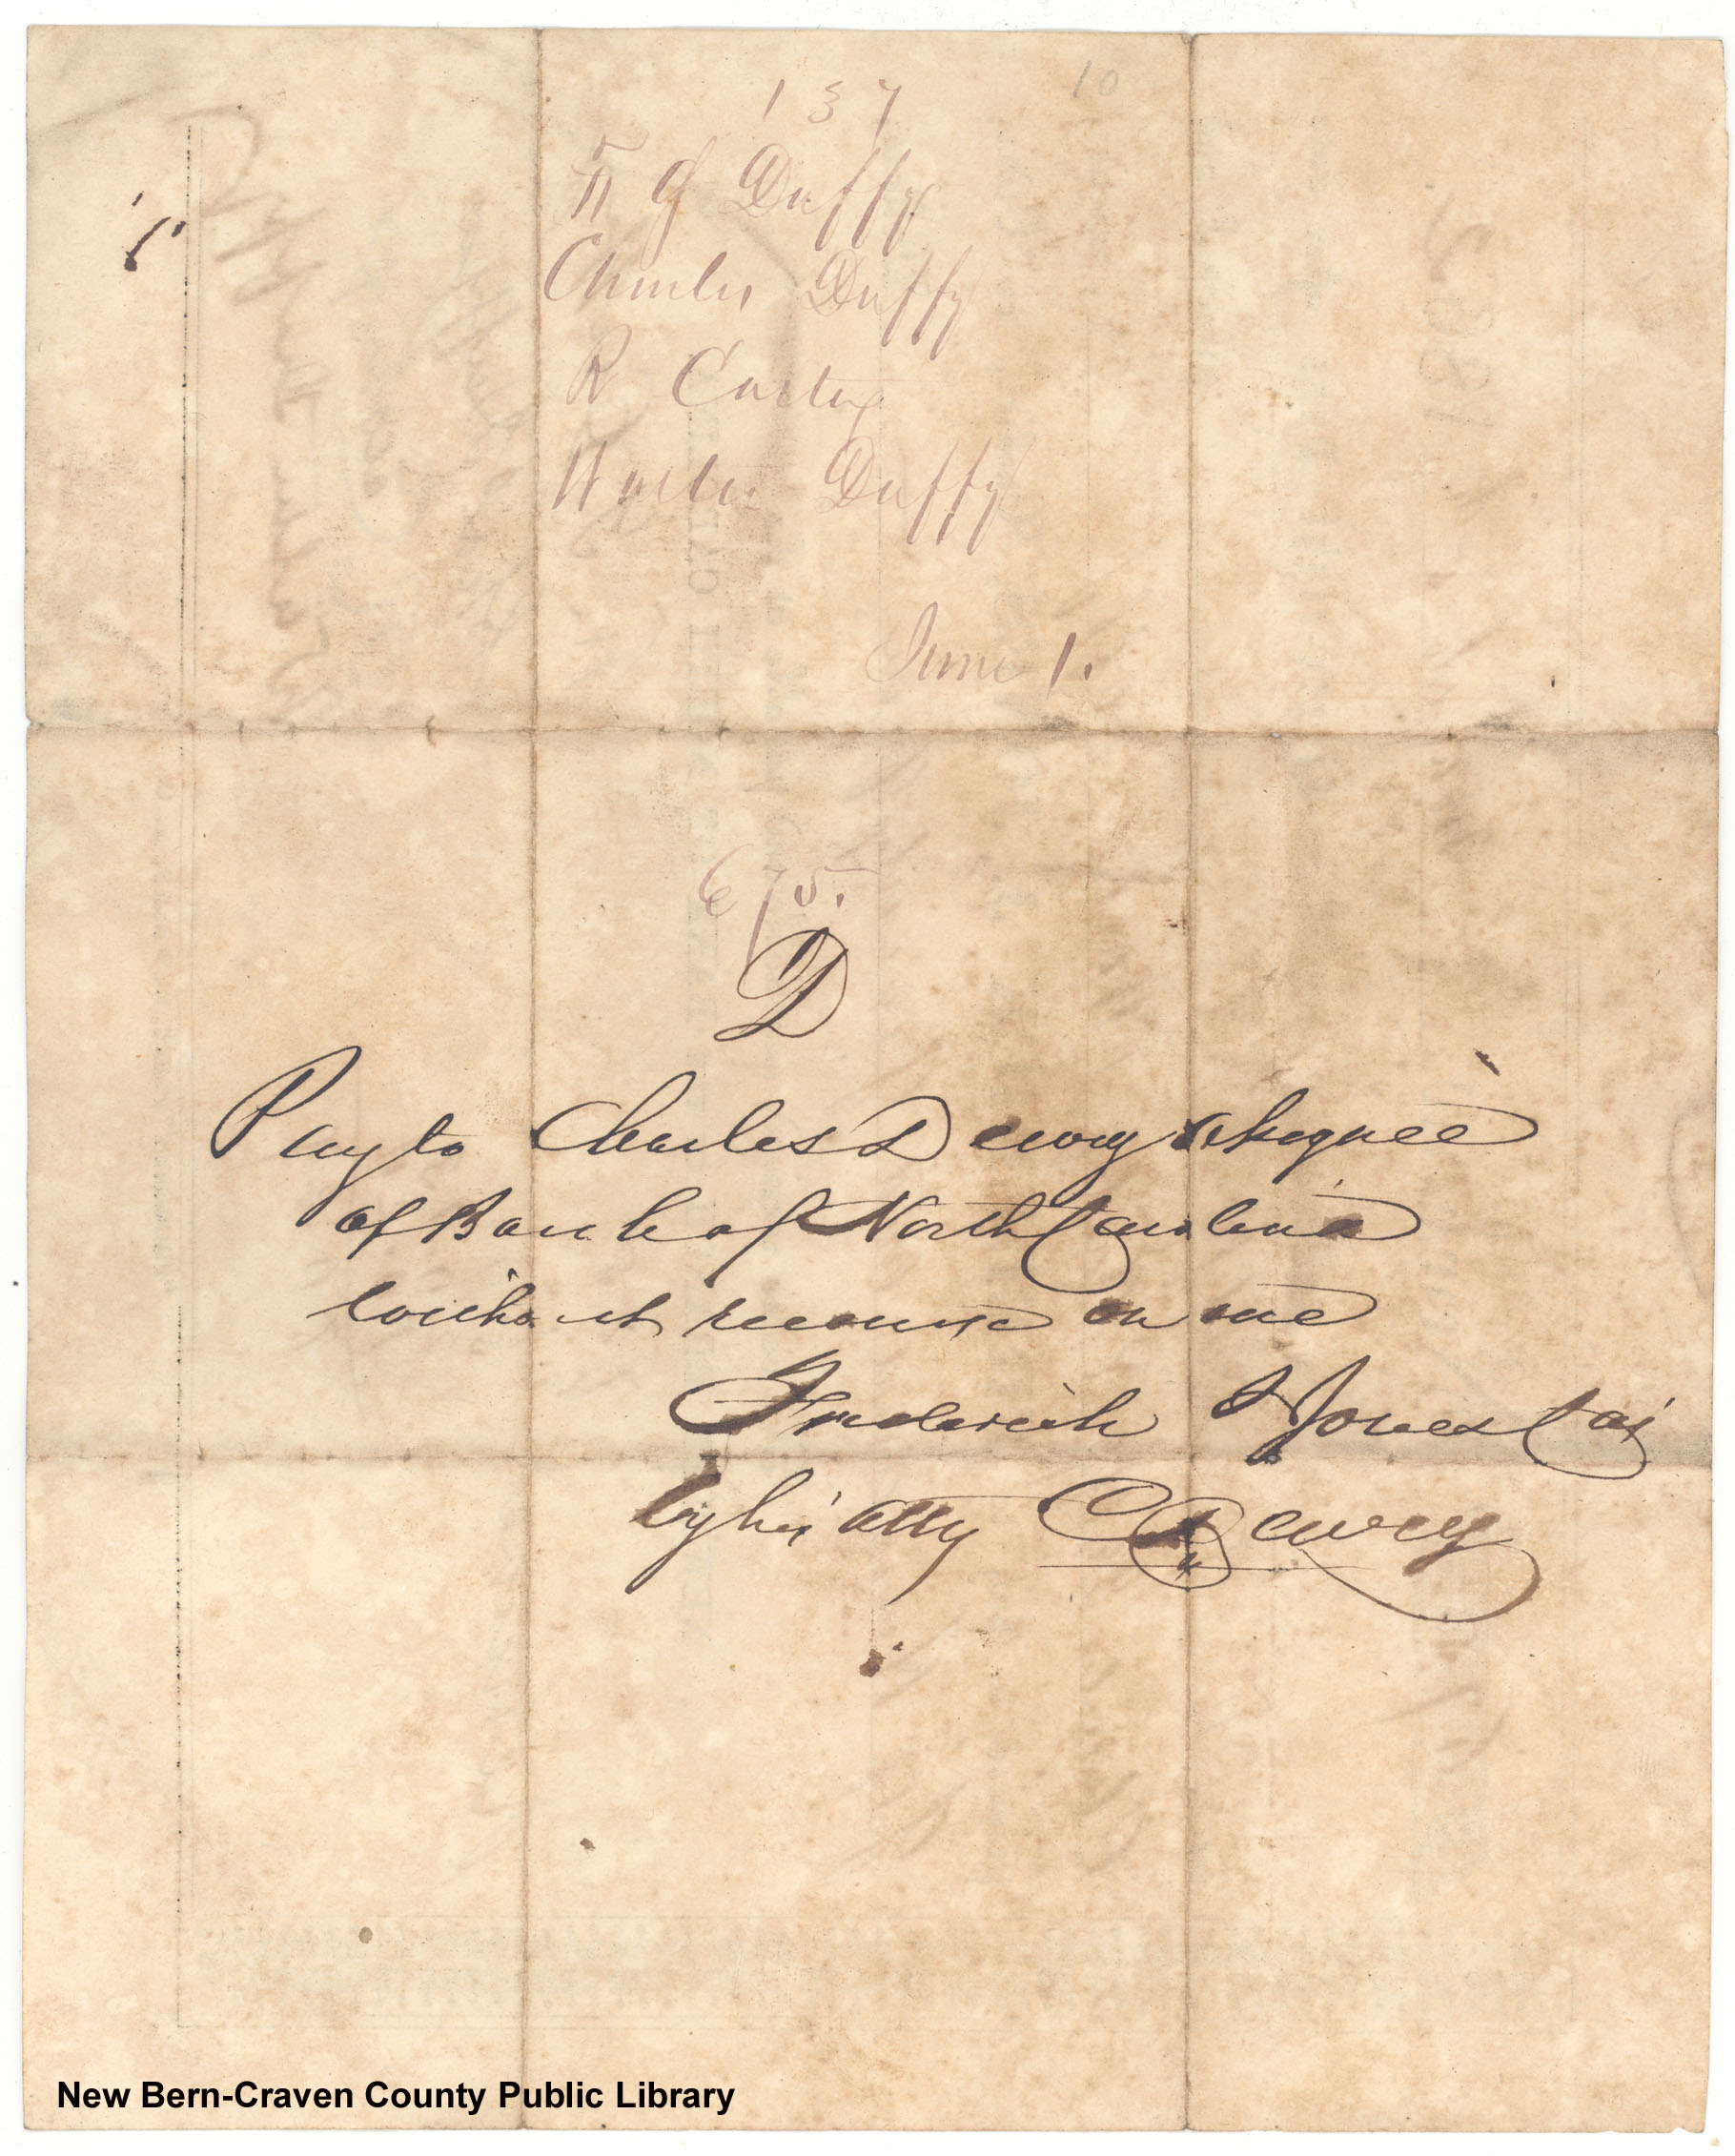 10
137
F G Duffy
Charles Duffy
R Custis
Walter Duffy
June 1.
675.
D
Pay to Charles Dewey Assignee
of Bank of North Carolina
without recourse on me
Frederick J Jones Cas
by his atty C Dewey
New Bern-Craven County Public Library